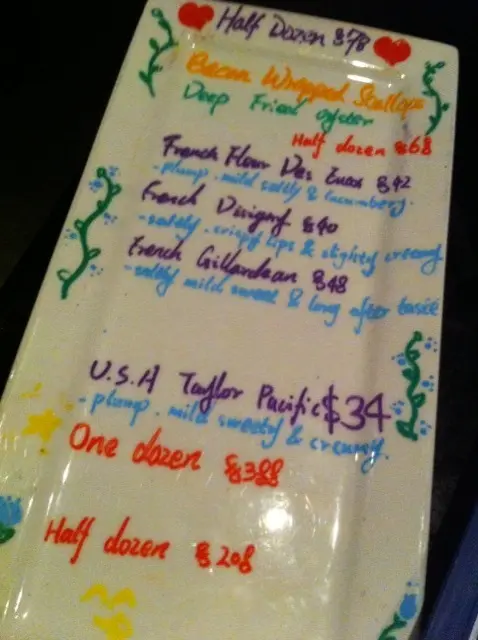 Half Dozen $78
Bacon Wrapped Scallops
Deep Fried oyster
Half dozen $68
French Fleur Des Eaux $42
- plump. mild salty & cucumbery.
French Duigorf $40
- salty. crispy lips & slightly creamy
French Gillardeau $48
- salty mild sweet & long after taste
U.S.A Taylor Pacific $34
- plump. mild sweety & creamy.
One dozen $388
Half dozen $208